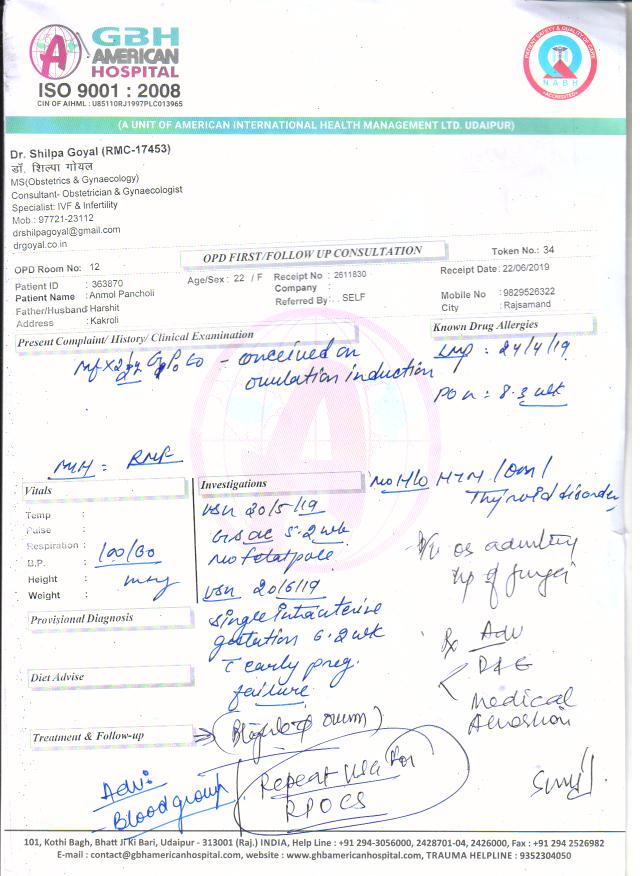 GBH
AMERICAN
HOSPITAL
ISO 9001 : 2008
CIN OF AIHML : U85110RJ1997PLC013965
PATIENT SAFETY & QUALITY OF CARE
NABH
ACCREDITED
(A UNIT OF AMERICAN INTERNATIONAL HEALTH MANAGEMENT LTD. UDAIPUR)
Dr. Shilpa Goyal (RMC-17453)
डॉ. शिल्पा गोयल
MS(Obstetrics & Gynaecology)
Consultant- Obstetrician & Gynaecologist
Specialist: IVF & Infertility
Mob.: 97721-23112
drshilpagoyal@gmail.com
drgoyal.co.in
OPD FIRST/FOLLOW UP CONSULTATION
Token No.: 34
OPD Room No: 12
Age/Sex : 22 / F
Receipt No : 2611830
Receipt Date: 22/06/2019
Patient ID : 363870
Company :
Patient Name : Anmol Pancholi
Referred By : . SELF
Mobile No : 9829526322
Father/Husband Harshit
City : Rajsamand
Address : Kakroli
Present Complaint/ History/ Clinical Examination
Known Drug Allergies
conceived on
ovulation induction
LMP : 24/4/19
POG : 8.3 wk
MH : RMF
No H/O HTN / DM /
Thyroid disorder
Vitals
Temp :
Pulse :
Respiration :
B.P. : 100/60
Height :
Weight :
Investigations
USG 20/5/19
G sac 5.2 wk
No fetal pole
USG 20/6/19
Single intrauterine
gestation 6.2 wk
c early preg.
failure
(Blighted ovum)
os admitting
tip of finger
Rx Adv
D&E
Medical
Abortion
Provisional Diagnosis
Diet Advise
Treatment & Follow-up
Adv:
Blood group
Repeat USG for
RPOCS
101, Kothi Bagh, Bhatt Ji Ki Bari, Udaipur - 313001 (Raj.) INDIA, Help Line : +91 294-3056000, 2428701-04, 2426000, Fax : +91 294 2526982
E-mail : contact@gbhamericanhospital.com, website : www.gbhamericanhospital.com, TRAUMA HELPLINE : 9352304050